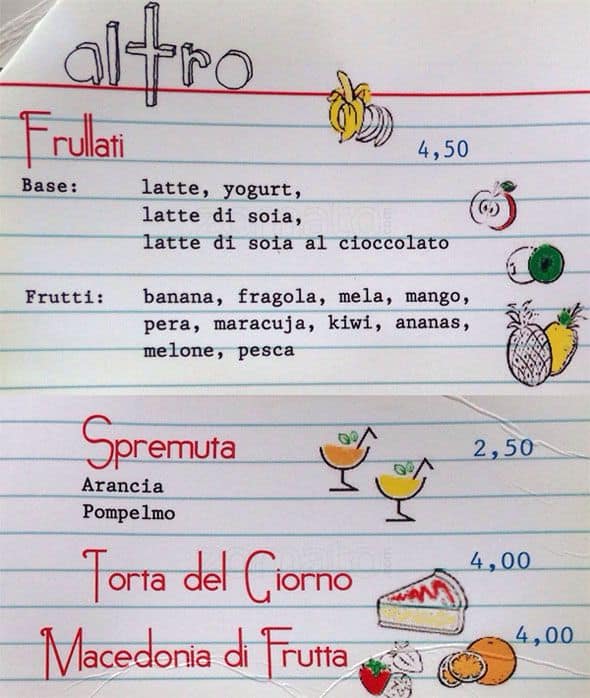 altro
Frullati 4,50
Base: latte, yogurt,
latte di soia,
latte di soia al cioccolato
Frutti: banana, fragola, mela, mango,
pera, maracuja, kiwi, ananas,
melone, pesca
Spremuta 2,50
Arancia
Pompelmo
Torta del Giorno 4,00
Macedonia di Frutta 4,00